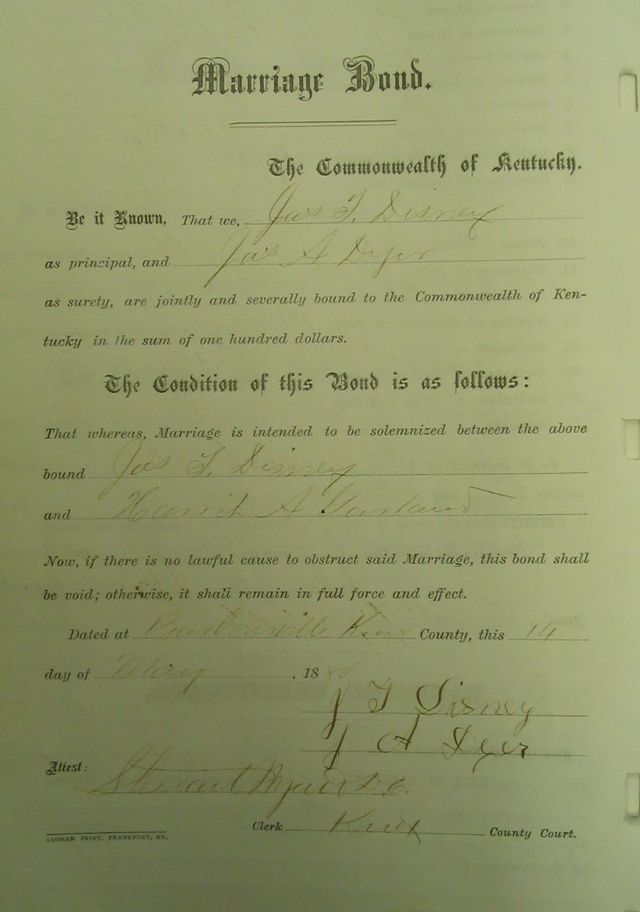 Marriage Bond.
The Commonwealth of Kentucky.
Be it Known, That we, Jas T. Disney
as principal, and Jas A Dyer
as surety, are jointly and severally bound to the Commonwealth of Ken-
tucky in the sum of one hundred dollars.
The Condition of this Bond is as follows:
That whereas, Marriage is intended to be solemnized between the above
bound Jas T. Disney
and A Garland
Now, if there is no lawful cause to obstruct said Marriage, this bond shall
be void; otherwise, it shall remain in full force and effect.
Dated at Barbourville Knox County, this 14
day of May , 18
J T Disney
J A Dyer
Attest:
Stewart D.C.
Clerk Knox County Court.
YEOMAN PRINT, FRANKFORT, KY.